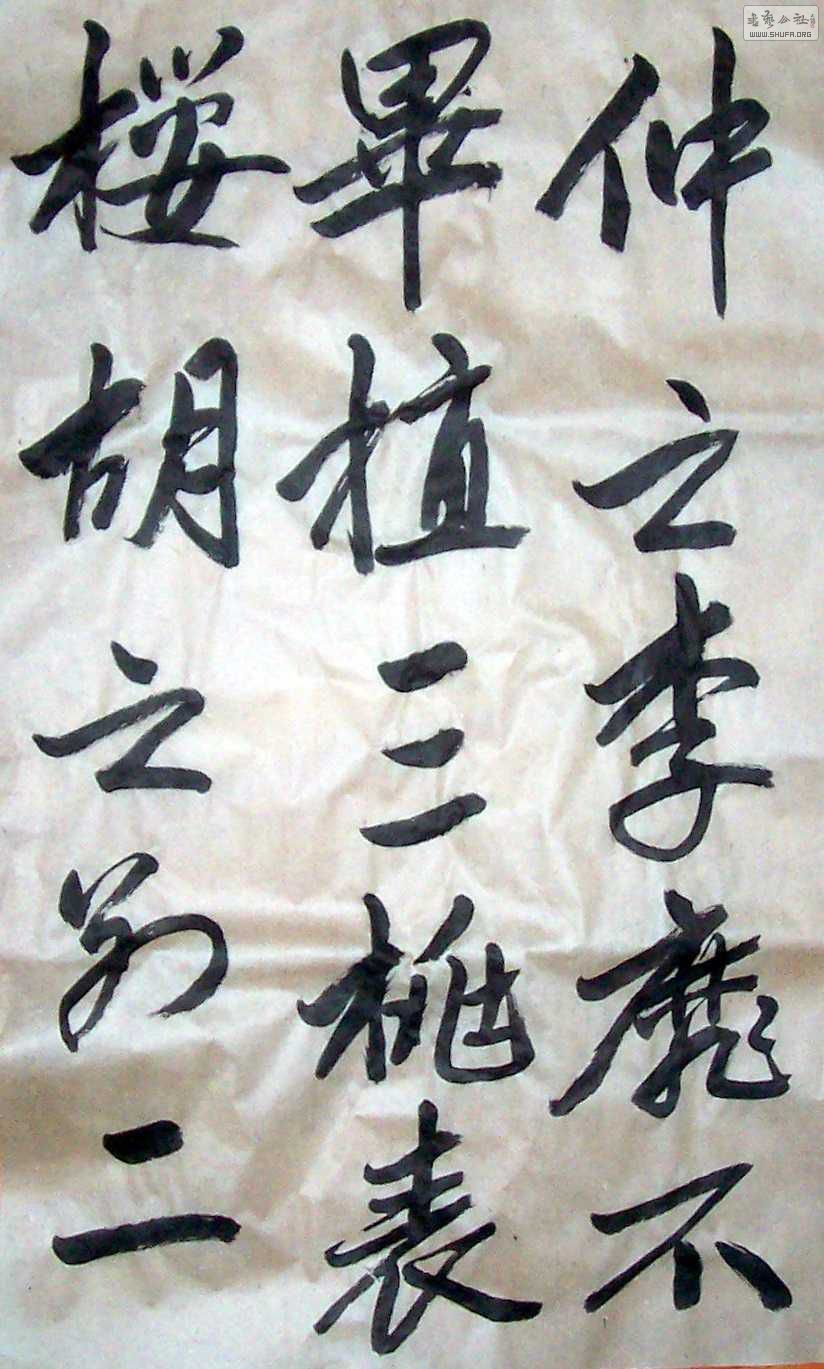 仲之李靡不
畢植三桃表
桜胡之别二
书艺公社
WWW.SHUFA.ORG